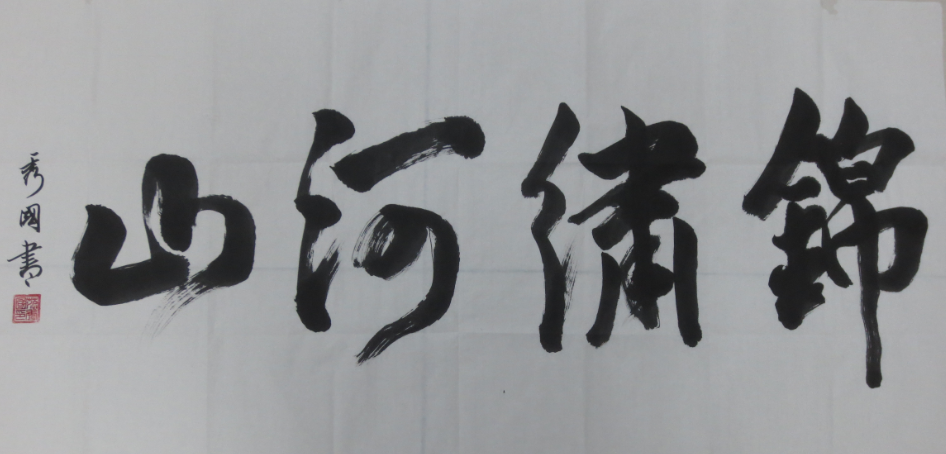 錦繡河山
秀國書